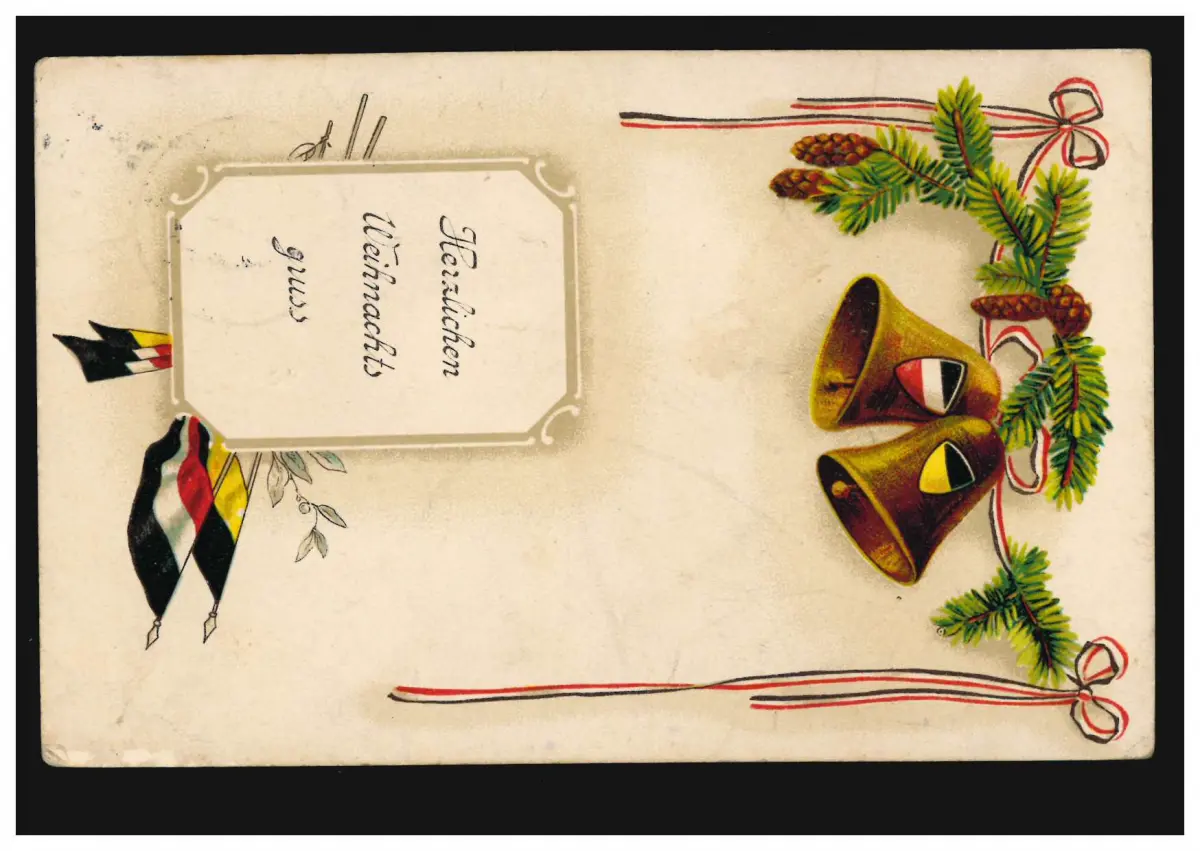 Herzlichen
Weihnachts
gruss